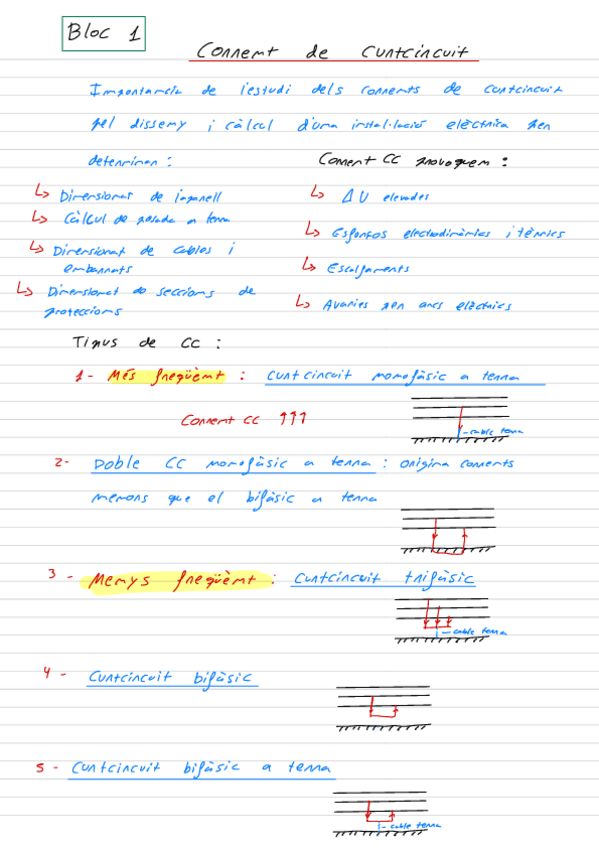 Bloc 1
Corrent de Curtcircuit
Importancia de l'estudi dels corrents de curtcircuit
pel disseny i càlcul d'una instal·lació elèctrica per
determinar:
Corrent CC provoquem:
↳ Dimensionat de l'aparell
↳ Càlcul de posada a terra
↳ Dimensionat de cables i
embarrats
↳ Dimensionat de seccions de
proteccions
↳ ΔU elevades
↳ Esforços electrodinàmics i tèrmics
↳ Escalfaments
↳ Avaries per arcs elèctrics
Tipus de CC:
1- Més freqüent: Curtcircuit monofàsic a terra
Corrent CC ↑↑↑
cable terra
2- Doble CC monofàsic a terra: origina corrents
menors que el bifàsic a terra
3- Menys freqüent: Curtcircuit trifàsic
cable terra
4- Curtcircuit bifàsic
5- Curtcircuit bifàsic a terra
cable terra